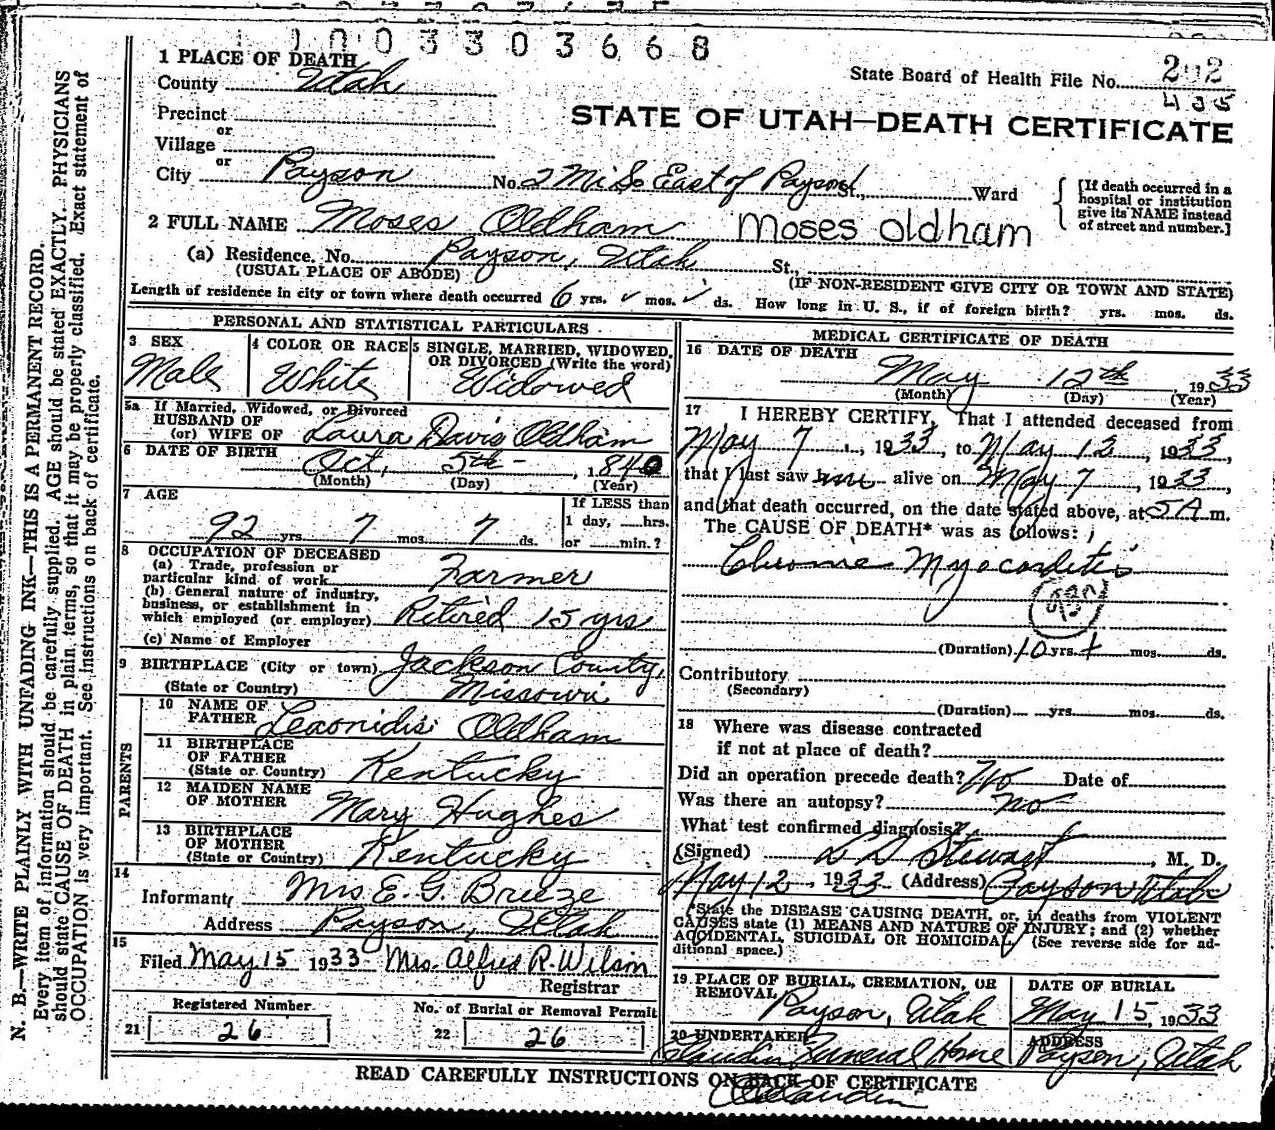 1003303668
State Board of Health File No. 202
435
STATE OF UTAH—DEATH CERTIFICATE
1 PLACE OF DEATH
County Utah
Precinct
or
Village
or
City Payson No. 2 Mi So East of Payson St., Ward
[If death occurred in a
hospital or institution
give its NAME instead
of street and number.]
2 FULL NAME Moses Oldham Moses Oldham
(a) Residence. No. Payson, Utah St.,
(USUAL PLACE OF ABODE) (IF NON-RESIDENT GIVE CITY OR TOWN AND STATE)
Length of residence in city or town where death occurred 6 yrs. ✓ mos. ✓ ds. How long in U. S., if of foreign birth? yrs. mos. ds.
PERSONAL AND STATISTICAL PARTICULARS
3 SEX
Male
4 COLOR OR RACE
White
5 SINGLE, MARRIED, WIDOWED,
OR DIVORCED (Write the word)
Widowed
5a If Married, Widowed, or Divorced
HUSBAND OF
(or) WIFE OF Laura Davis Oldham
6 DATE OF BIRTH Oct, 5th - , 1840
(Month) (Day) (Year)
7 AGE
92 yrs. 7 mos. 7 ds.
If LESS than
1 day, hrs.
or min.?
8 OCCUPATION OF DECEASED
(a) Trade, profession or
particular kind of work Farmer
(b) General nature of industry,
business, or establishment in
which employed (or employer) Retired 15 yrs
(c) Name of Employer
9 BIRTHPLACE (City or town) Jackson County,
(State or Country) Missouri
PARENTS
10 NAME OF
FATHER Leaonidis Oldham
11 BIRTHPLACE
OF FATHER
(State or Country) Kentucky
12 MAIDEN NAME
OF MOTHER Mary Hughes
13 BIRTHPLACE
OF MOTHER
(State or Country) Kentucky
14
Informant Mrs E. G. Breeze
Address Payson, Utah
15
Filed May 15 1933 Mrs. Alfred R. Wilson
Registrar
Registered Number
21 26
No. of Burial or Removal Permit
22 26
MEDICAL CERTIFICATE OF DEATH
16 DATE OF DEATH
May 12th, 1933
(Month) (Day) (Year)
17 I HEREBY CERTIFY, That I attended deceased from
May 7, 1933, to May 12, 1933,
that I last saw him alive on May 7, 1933,
and that death occurred, on the date stated above, at 5 A m.
The CAUSE OF DEATH* was as follows:
Chronic Myocarditis
(Duration) 10 yrs. + mos. ds.
Contributory
(Secondary)
(Duration) yrs. mos. ds.
18 Where was disease contracted
if not at place of death?
Did an operation precede death? No Date of
Was there an autopsy? no
What test confirmed diagnosis?
(Signed) L D Stewart, M. D.
May 12, 1933 (Address) Payson Utah
*State the DISEASE CAUSING DEATH, or, in deaths from VIOLENT
CAUSES state (1) MEANS AND NATURE OF INJURY; and (2) whether
ACCIDENTAL, SUICIDAL OR HOMICIDAL. (See reverse side for ad-
ditional space.)
19 PLACE OF BURIAL, CREMATION, OR
REMOVAL Payson, Utah
DATE OF BURIAL
May 15, 1933
20 UNDERTAKER
Claudin Funeral Home
ADDRESS
Payson, Utah
READ CAREFULLY INSTRUCTIONS ON BACK OF CERTIFICATE
N. B.—WRITE PLAINLY WITH UNFADING INK—THIS IS A PERMANENT RECORD.
Every item of information should be carefully supplied. AGE should be stated EXACTLY. PHYSICIANS
should state CAUSE OF DEATH in plain terms, so that it may be properly classified. Exact statement of
OCCUPATION is very important. See instructions on back of certificate.